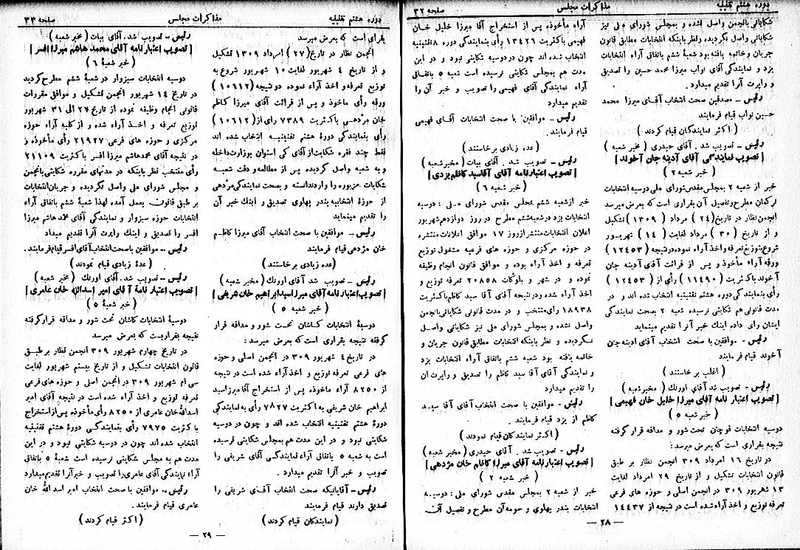 دوره هشتم تقنینیه
مذاکرات مجلس
صفحه ۳۲
شکایاتی بانجمن واصل نشده و بمجلس شورای ملی نیز
شکایاتی واصل نگردیده ونظر باینکه انتخابات مطابق قانون
جریان و خاتمه یافته بود شعبهٔ ششم باتفاق آراء انتخابات
یزد و نمایندگی آقای نواب میرزا محمد حسین را تصدیق
و راپرت آنرا تقدیم میدارد.
رئیس ـ مصدقین صحت انتخاب آقای میرزا محمد
حسین نواب قیام فرمایند
(اکثر نمایندگان قیام کردند)
رئیس ـ تصویب شد. آقای حیدری (مخبر شعبه)
[تصویب نمایندگی آقای آدینه جان آخوند]
(خبر شعبه ۲)
خبر از شعبه ۲ بمجلس مقدس شورای ملی دوسیه انتخابات
ترکمان مطرح وتفصیل آن بقراری است که بعرض میرسد
انجمن نظار در تاریخ (۲۴) مرداد (۱۳۰۹) تشکیل
و از تاریخ (۳۰) مرداد لغایت (۱۴) شهریور
شروع بتوزیع تعرفه واخذ آراء نموده درنتیجه (۱۲۴۵۳)
ورقه آراء مأخوذ و پس از قرائت آقای آدینه جان
آخوند باکثریت (۱۱۴۹۰) رأی از (۱۲۴۵۳)
رأی بنمایندگی دوره هشتم تقنینیه انتخاب شده اند و در
مدت قانونی هم شکایتی نرسیده شعبه ۲ بصحت نمایندگی
ایشان رأی داده اینک خبر آنرا تقدیم مینماید
رئیس ـ موافقین با صحت انتخاب آقای آدینه جان
آخوند قیام فرمایند
(اغلب بر خاستند)
رئیس ـ تصویب شد. آقای اورنک (مخبر شعبه)
[تصویب اعتبار نامه آقای میرزا خلیل خان فهیمی]
(خبر شعبه ۵)
دوسیه انتخابات قوچان تحت شور و مداقه قرار گرفته
نتیجه بقراری است که بعرض میرسد:
در تاریخ ۱۶ امرداد ۳۰۹ انجمن نظار بر طبق
قانون انتخابات تشکیل و از تاریخ ۲۹ امرداد لغایت
۱۳ شهریور ۳۰۹ در انجمن اصلی و حوزه های فرعی
تعرفه توزیع و اخذ آراء شده است در نتیجه از ۱۴۴۳۷
آراء مأخوذه پس از استخراج آقا میرزا خلیل خان
فهیمی باکثریت ۱۳۴۲۱ رأی بنمایندگی دوره ۸ تقنینیه
انتخاب شده اند چون در دوسیه شکایتی نبود و در این
مدت هم بمجلس شکایتی نرسیده است شعبه ۵ باتفاق
آراء نمایندگی آقای فهیمی را تصویب و خبر آن را
تقدیم میدارد
رئیس ـ موافقین با صحت انتخابات آقای فهیمی
قیام فرمایند.
(عده زیادی برخاستند)
رئیس ـ تصویب شد. آقای بیات (مخبر شعبه)
[تصویب اعتبار نامه آقای سید کاظم یزدی]
(خبر شعبه ۶)
خبر از شعبه ششم بمجلس مقدس شورای ملی : دوسیه
انتخابات یزد در شعبه ششم مطرح در روز دوازدهم شهریور
اعلان انتخابات منتشر از روز ۱۷ موافق اعلانات منتشره
در حوزه مرکزی و حوزه های فرعیه مشغول توزیع
تعرفه و اخذ آراء بوده و موافق قانون انجام وظیفه
نموده و در شهر و بلوکات ۲۰۸۵۸ تعرفه توزیع
اخذ آراء شده ودر نتیجه آقای آقا سید کاظم باکثریت
۱۸۹۳۸ رأی منتخب و در مدت قانونی شکایاتی بانجمن
واصل نشده و بمجلس شورای ملی نیز شکایاتی واصل
نگردیده و نظر باینکه انتخابات مطابق قانون جریان و
خاتمه یافته بود شعبه ششم باتفاق آراء انتخابات یزد
و نمایندگی آقای سید کاظم را تصدیق و راپرت آن
را تقدیم میدارد
رئیس ـ موافقین با صحت انتخاب آقای آقا سید
کاظم از یزد قیام فرمایند.
(اکثر نمایندگان قیام نمودند)
رئیس ـ تصویب شد. آقای حیدری (مخبر شعبه)
[تصویب اعتبارنامه آقای میرزا کاظم خان مژدهی]
(خبر شعبه ۲)
خبر از شعبه ۲ بمجلس مقدس شورای ملی : دوسیه
انتخابات بندر پهلوی و حومه آن مطرح و تفصیل آن
ـ ۲۸ ـ
دوره هشتم تقنینیه
مذاکرات مجلس
صفحه ۳۳
بقراری است که بعرض میرسد
انجمن نظار در تاریخ (۲۷) امرداد ۱۳۰۹ تشکیل
و از تاریخ ۴ شهریور لغایت ۱۰ شهریور شروع به
توزیع تعرفه واخذ آراء نموده در نتیجه (۱۰۶۱۲)
ورقه رأی مأخوذ و پس از قرائت آقای میرزا کاظم
خان مژدهی باکثریت ۷۳۸۹ رأی از (۱۰۶۱۲)
رأی بنمایندگی دورهٔ هشتم تقنینیه انتخاب شده اند
فقط چند فقره شکایت از آقای کی استوان بوزارت داخله
و به شعبه واصل گردیده پس از مطالعه و دقت شعبه
شکایات مزبوره را وارد ندانسته و بصحت نمایندگی مژدهی
از حوزهٔ انتخابیه بندر پهلوی تصدیق و اینک خبر آن
را تقدیم مینماید
رئیس ـ موافقین با صحت انتخاب آقای میرزا کاظم
خان مژدهی قیام فرمایند
(عده زیادی برخاستند)
رئیس ـ تصویب شد. آقای اورنک (مخبر شعبه)
[تصویب اعتبار نامه آقای میرزا سید ابراهیم خان شریفی]
(خبر شعبه ۵)
دوسیهٔ انتخابات کاشان تحت شور و مداقه قرار
گرفته نتیجه بقراری است که بعرض میرسد:
در تاریخ ۴ شهریور ۳۰۹ در انجمن اصلی و حوزه
های فرعی تعرفه توزیع و اخذ آراء شده است در نتیجه
از ۸۲۵۰ آراء مأخوذه پس از استخراج آقا میرزا سید
ابراهیم خان شریفی به اکثریت ۷۸۲۷ رأی به نمایندگی
دورهٔ هشتم تقنینیه انتخاب شده اند و چون در دوسیه
شکایتی نبود و در این مدت هم بمجلس شکایتی نرسیده
است به شعبه ۵ باتفاق آراء نمایندگی آقای شریفی را
تصویب و خبر آنرا تقدیم میدارد.
رئیس ـ آقایانیکه صحت انتخاب آقای شریفی را
تصدیق دارند قیام فرمایند
(نمایندگان قیام کردند)
رئیس ـ تصویب شد. آقای بیات (مخبر شعبه)
[تصویب اعتبار نامه آقای محمد هاشم میرزا افسر]
(خبر شعبه ۶)
دوسیه انتخابات سبزوار در شعبهٔ ششم مطرح گردید
در تاریخ ۱۴ شهریور انجمن تشکیل و موافق مقررات
قانونی انجام وظیفه نموده از تاریخ ۲۶ الی ۳۱ شهریور
توزیع تعرفه و اخذ آراء شده و از کلیه آراء حوزه
مرکزی و حوزه های فرعی ۲۱۹۲۷ رأی مأخوذه و
در نتیجه آقای محمد هاشم میرزا افسر باکثریت ۲۱۱۰۹
رأی منتخب نظر باینکه در مدتهای مقرره شکایتی بانجمن
و مجلس شورای ملی واصل نگردیده و جریان انتخابات
بر طبق قانون بعمل آمده لهذا شعبهٔ ششم باتفاق آراء
انتخابات حوزه سبزوار و نمایندگی آقای محمد هاشم میرزا
افسر را تصدیق و اینک راپرت آنرا تقدیم میداد
رئیس ـ موافقین با صحت انتخاب آقای افسر قیام فرمایند.
(عدهٔ زیادی قیام نمودند)
رئیس ـ تصویب شد. آقای اورنک (مخبر شعبه)
[تصویب اعتبار نامهٔ آقای امیر اسدالله خان عامری]
(خبر شعبهٔ ۵)
دوسیهٔ انتخابات کاشان تحت شور و مداقه قرار گرفته
نتیجه بقراریست که بعرض میرسد
در تاریخ چهارم شهریور ۳۰۹ انجمن نظار بر طبق
قانون انتخابات تشکیل و از تاریخ بیستم شهریور لغایت
سی ام شهریور ۳۰۹ در انجمن اصلی و حوزه های فرعی
تعرفه توزیع و اخذ آراء شده است در نتیجه آقای امیر
اسدالله خان عامری از ۸۲۵۰ رأی مأخوذه پس از استخراج
باکثریت ۷۹۷۵ رأی بنمایندگی دورهٔ هشتم تقنینیه
انتخاب شده اند چون در دوسیه شکایتی نبود و در این
مدت هم به مجلس شکایتی نرسیده است شعبهٔ ۵ باتفاق
آراء نمایندگی آقای عامری را تصویب و خبر آنرا تقدیم میدارد
رئیس ـ موافقین با صحت انتخاب امیر اسدالله خان
عامری قیام فرمایند.
(اکثر قیام کردند)
ـ ۲۹ ـ